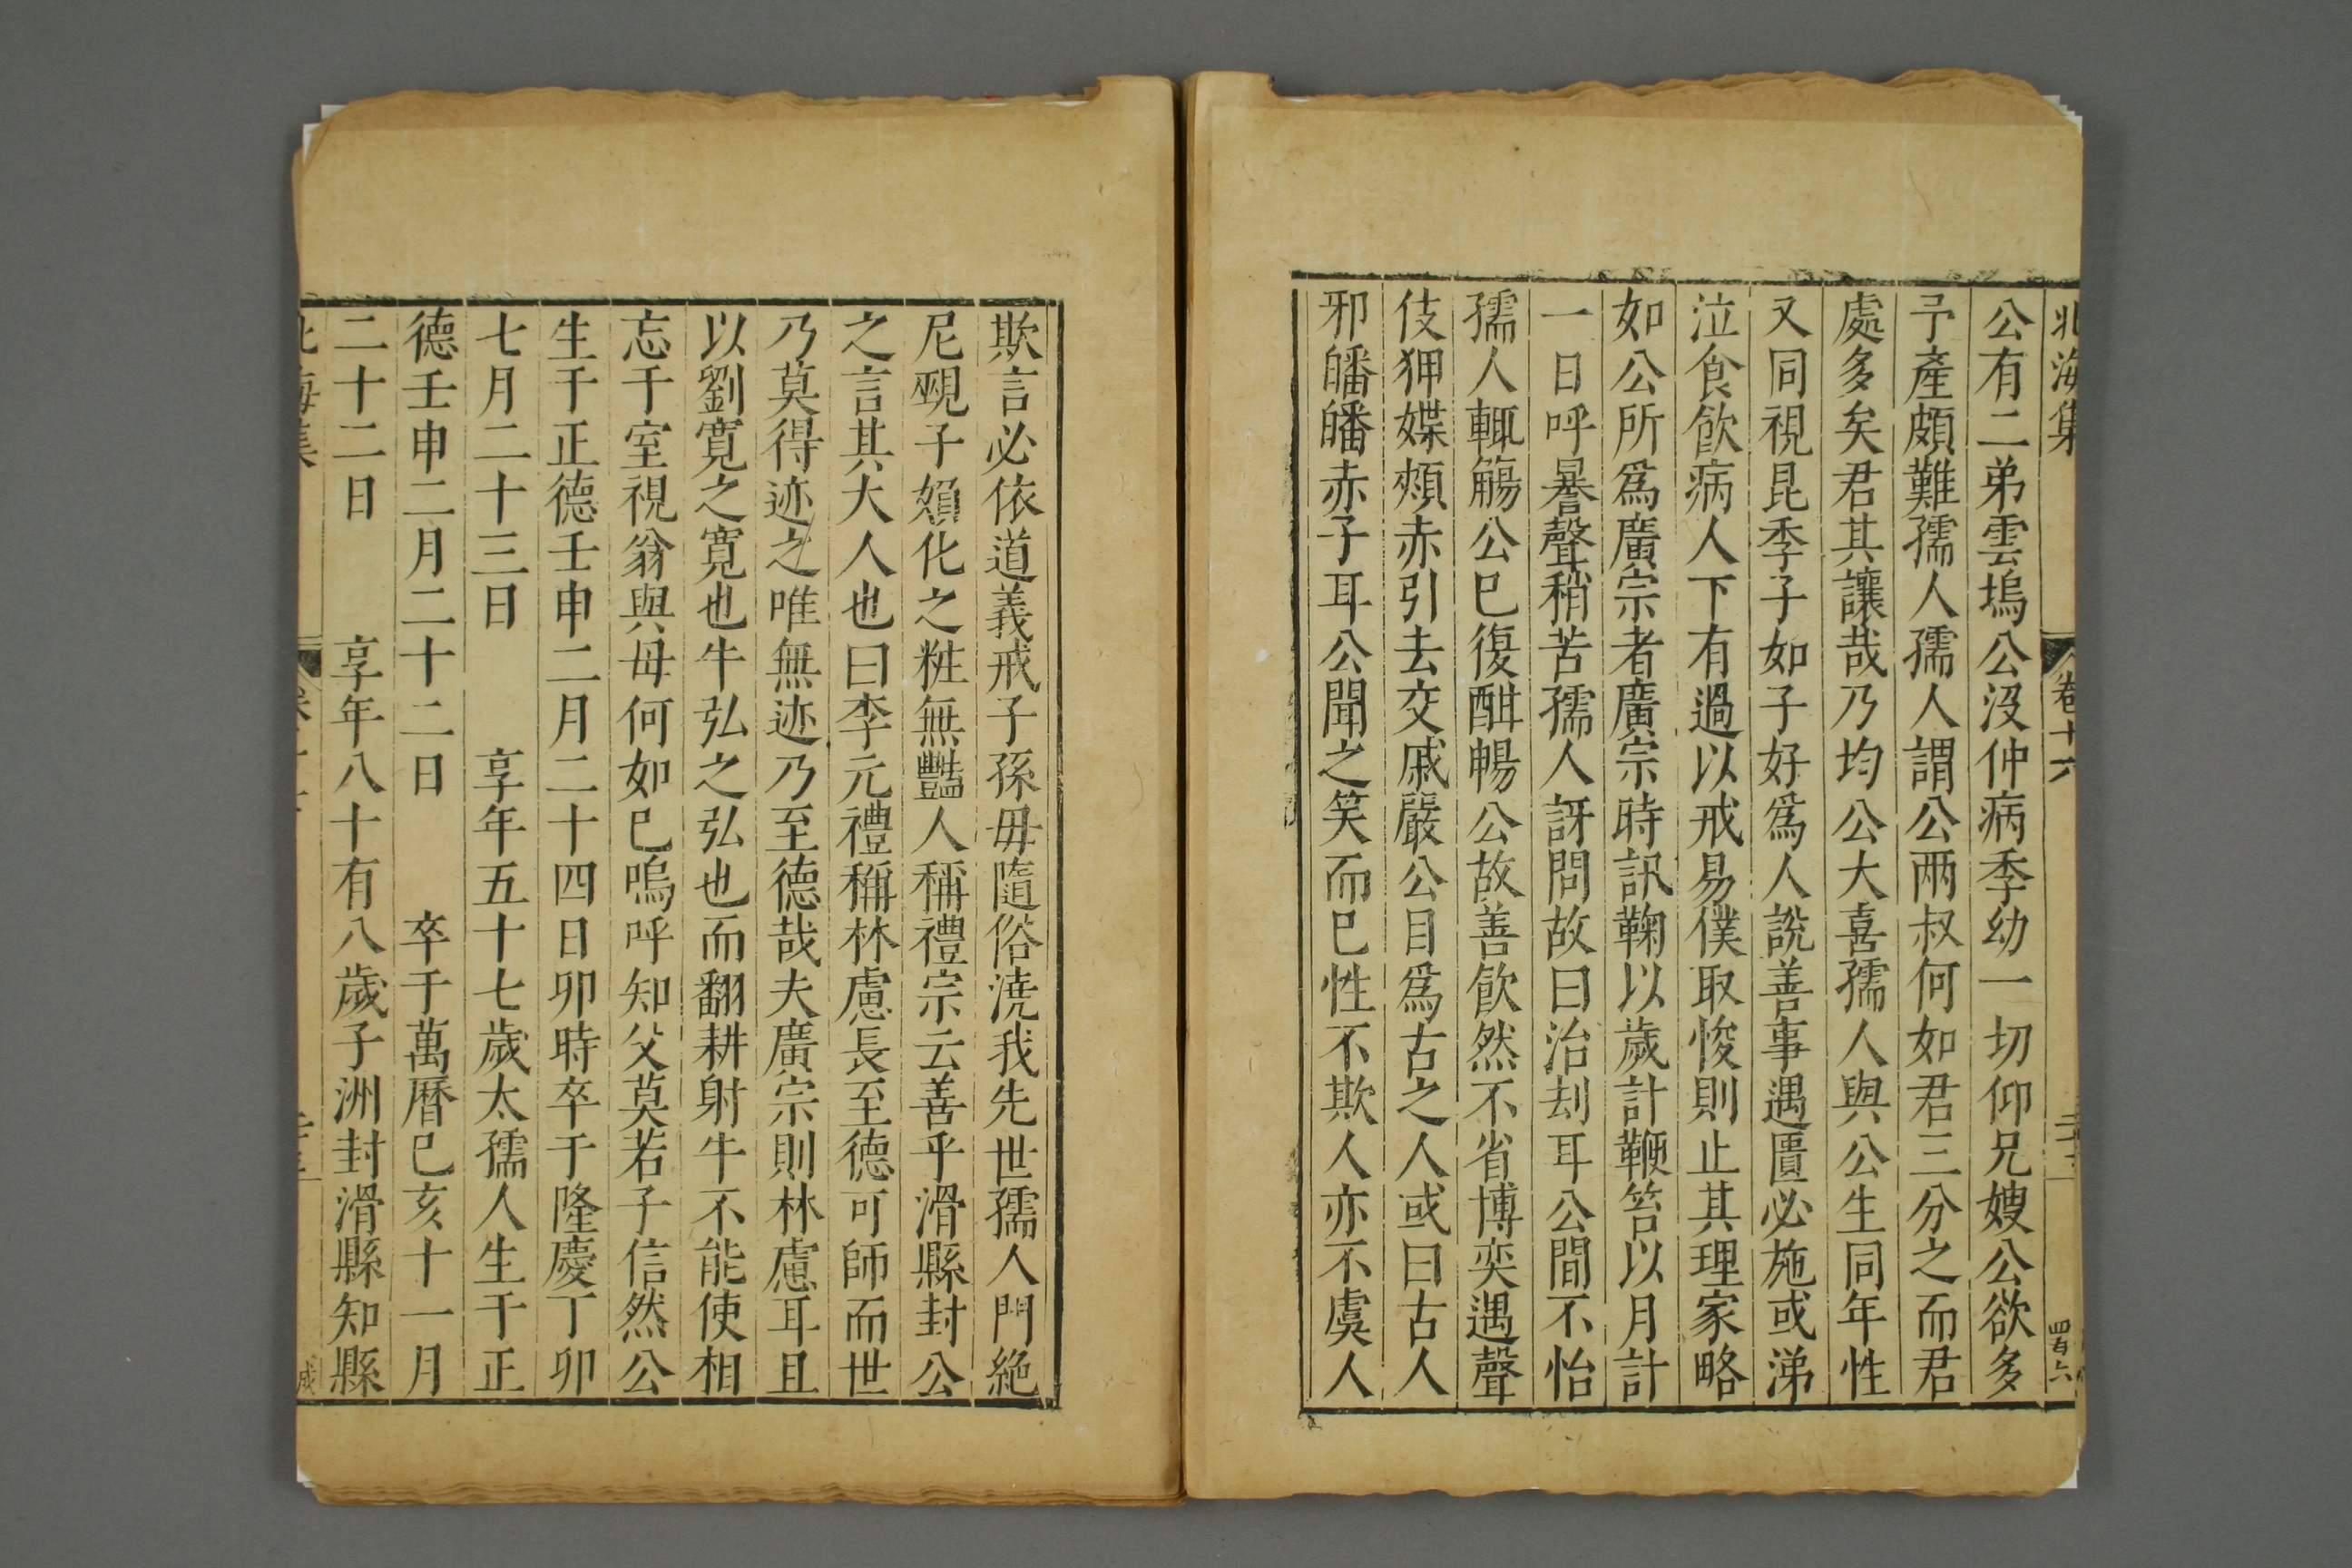 北海集 卷十六 四百六
公有二弟雲塢公沒仲病季幼一切仰兄嫂公欲多
予產頗難孺人孺人謂公兩叔何如君三分之而君
處多矣君其讓哉乃均公大喜孺人與公生同年性
又同視昆季子如子好爲人說善事遇匱必施或涕
泣食飲病人下有過以戒易僕取悛則止其理家略
如公所爲廣宗者廣宗時訊鞠以歲計鞭笞以月計
一日呼暴聲稍苦孺人訝問故曰治刦耳公間不怡
孺人輒觴公巳復酣暢公故善飲然不省博奕遇聲
伎狎媟頰赤引去交戚嚴公目爲古之人或曰古人
邪皤皤赤子耳公聞之笑而巳性不欺人亦不虞人
欺言必依道義戒子孫毋隨俗澆我先世孺人門絶
尼覡子婦化之粧無豔人稱禮宗云善乎滑縣封公
之言其大人也曰李元禮稱林慮長至德可師而世
乃莫得迹之唯無迹乃至德哉夫廣宗則林慮耳且
以劉寬之寬也牛弘之弘也而翻耕射牛不能使相
忘于室視翁與母何如巳嗚呼知父莫若子信然公
生于正德壬申二月二十四日卯時卒于隆慶丁卯
七月二十三日 享年五十七歲太孺人生于正
德壬申二月二十二日 卒于萬曆巳亥十一月
二十二日 享年八十有八歲子洲封滑縣知縣